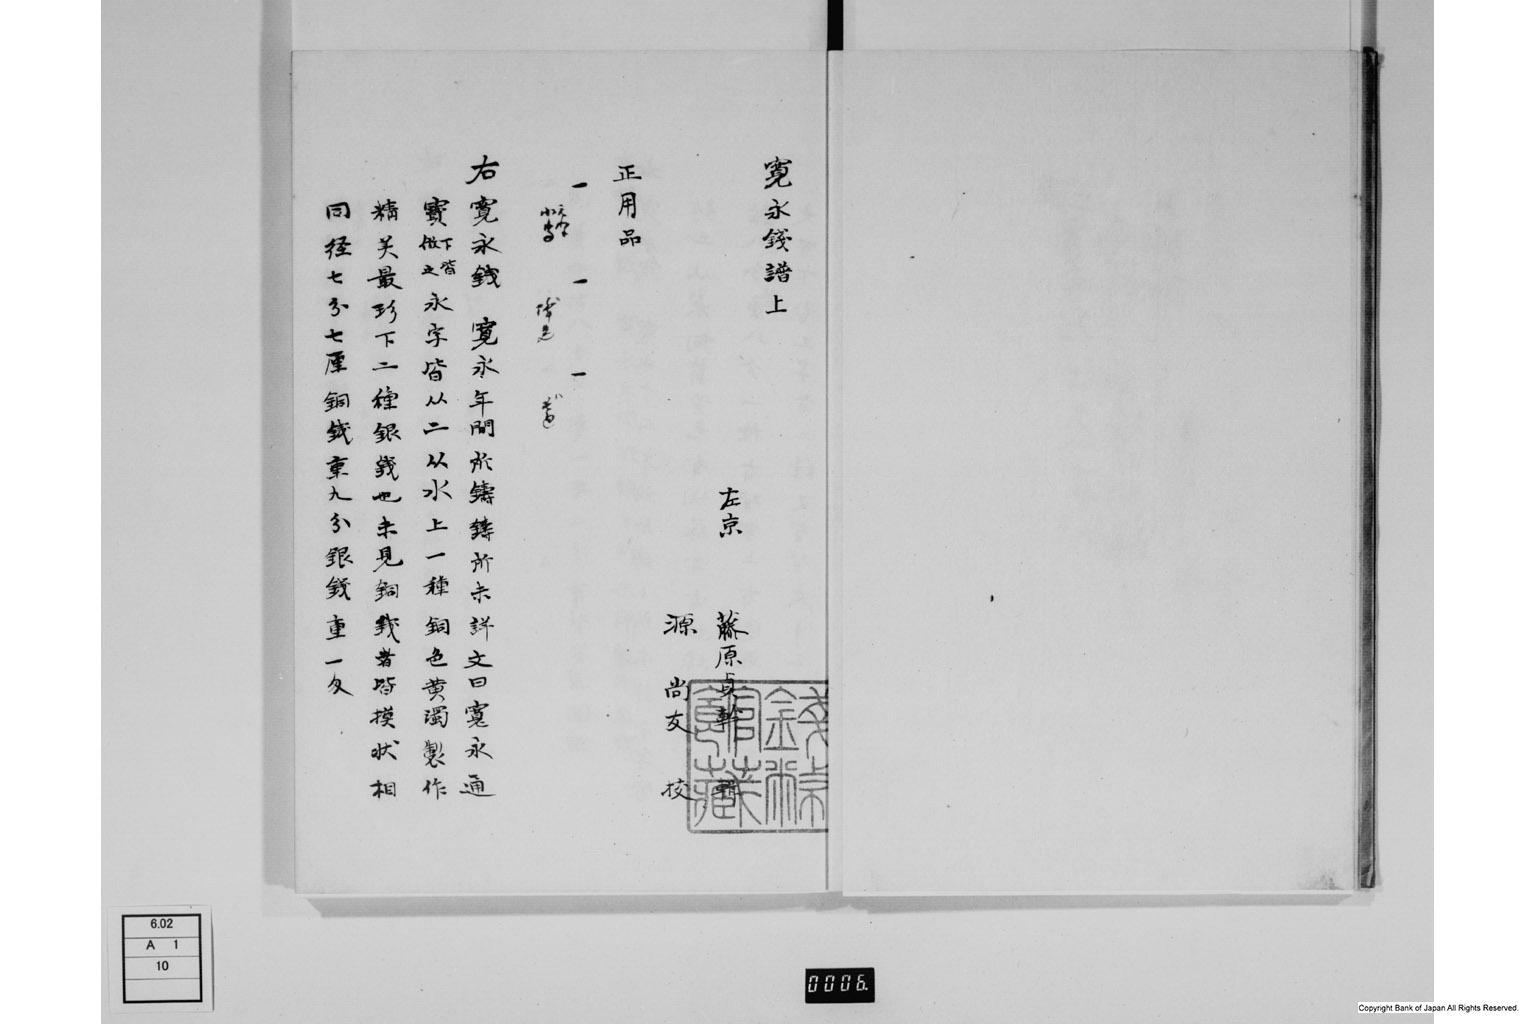 寛永錢譜上
左京 藤原貞幹 輯
源尚友 挍
正用品
一 一 一
右寛永錢 寛永年間所鑄鑄所未詳文曰寛永通
寶下皆倣之永字皆从二从水上一種銅色黄濁製作
精美最珍下二種銀錢也未見銅錢者皆摸状相
同径七分七厘銅錢重九分銀錢重一匁
錢幣館藏
6.02
A 1
10
0006.
Copyright Bank of Japan All Rights Reserved.